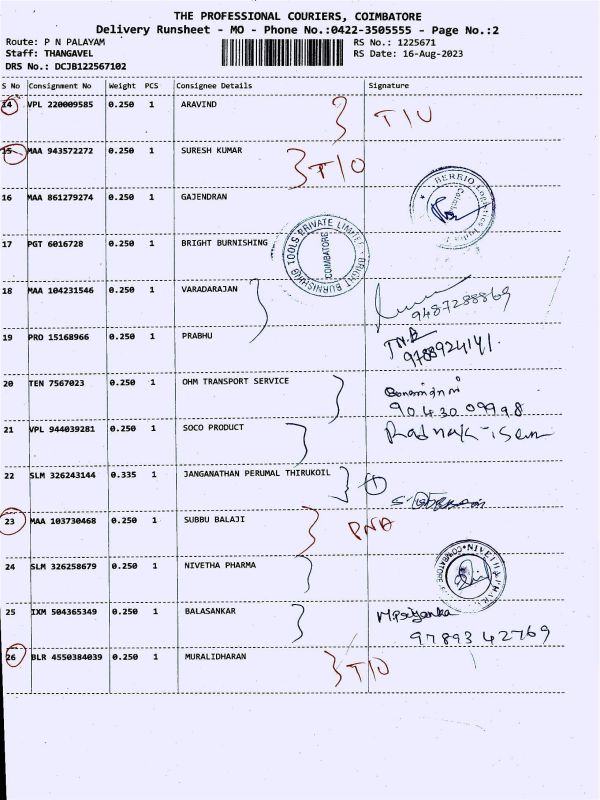 THE PROFESSIONAL COURIERS, COIMBATORE
Delivery Runsheet - MO - Phone No.:0422-3505555 - Page No.:2
Route: P N PALAYAM
RS No.: 1225671
Staff: THANGAVEL
RS Date: 16-Aug-2023
DRS No.: DCJB122567102
S No Consignment No Weight PCS Consignee Details Signature
14 VPL 220009585 0.250 1 ARAVIND T/O
15 MAA 943572272 0.250 1 SURESH KUMAR T/O
16 MAA 861279274 0.250 1 GAJENDRAN
BERRIO Logistics India
17 PGT 6016728 0.250 1 BRIGHT BURNISHING
BRIGHT BURNISHING TOOLS PRIVATE LIMITED
COIMBATORE
18 MAA 104231546 0.250 1 VARADARAJAN
9487288869
19 PRO 15168966 0.250 1 PRABHU
9788924141
20 TEN 7567023 0.250 1 OHM TRANSPORT SERVICE
90430 09998
21 VPL 944039281 0.250 1 SOCO PRODUCT
22 SLM 326243144 0.335 1 JANGANATHAN PERUMAL THIRUKOIL 1
23 MAA 103730468 0.250 1 SUBBU BALAJI PNA
24 SLM 326258679 0.250 1 NIVETHA PHARMA
NIVETHA PHARMA COIMBATORE
25 IXM 504365349 0.250 1 BALASANKAR M.Priyanka
97893 42769
26 BLR 4550384039 0.250 1 MURALIDHARAN T/O